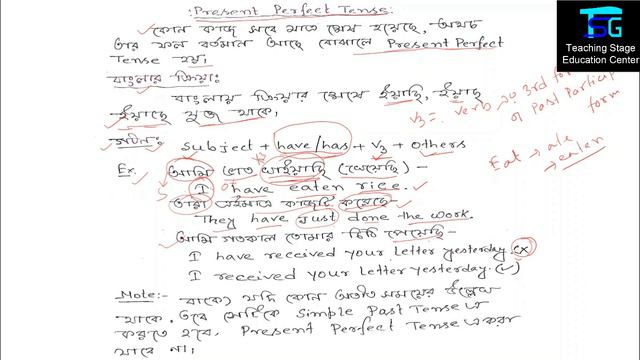 :Present Perfect Tense:
কোন কাজ সবে মাত্র শেষ হয়েছে, অথচ
তার ফল বর্তমান আছে বোঝালে Present Perfect
Tense হয়।
বাংলার ক্রিয়া:
বাংলায় ক্রিয়ার শেষে ইয়াছি, ইয়াছ
ইয়াছে যুক্ত থাকে,
V3 = verb এর 3rd form
Past Participle
form
গঠন: subject + have/has + V3 + others
Eat → ate
→ eaten
Ex. আমি ভাত খাইয়াছি (খেয়েছি) –
I have eaten rice.
তারা এইমাত্র কাজটি করেছে –
They have just done the work.
আমি গতকাল তোমার চিঠি পেয়েছি –
I have received your Letter yesterday. (x)
I received your Letter yesterday. (✓)
Note:- বাক্যে যদি কোন অতীত সময়ের উল্লেখ
থাকে, তবে সেটিকে Simple Past Tense এ
করতে হবে, Present Perfect Tense এ করা
যাবে না।
TSG
Teaching Stage
Education Center